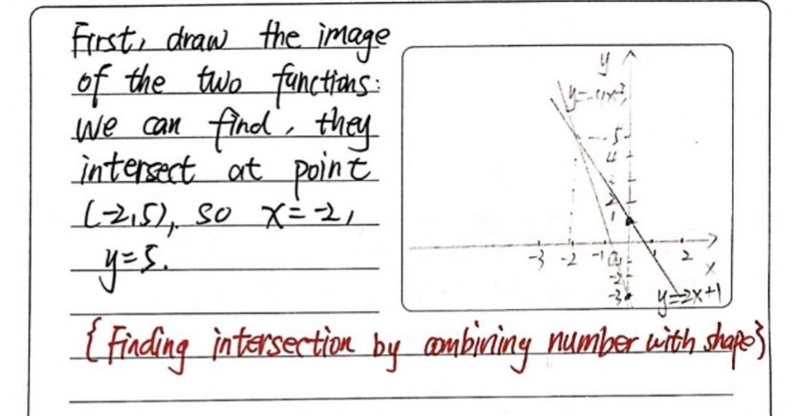 First, draw the image
of the two functions:
We can find, they
intersect at point
(-2,5), so x=-2,
y=5.
{Finding intersection by combining number with shape}
y
5
4
2
1
-3 -2 -1 2
x
-2
-3
y=-2x+1